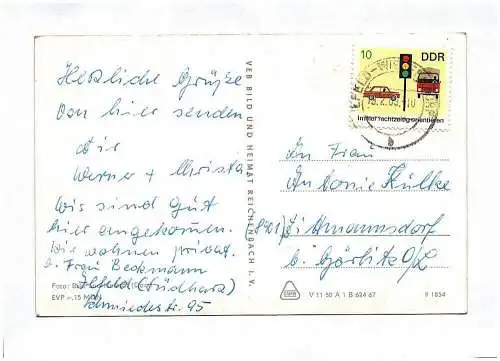 Herzliche Grüße
von hier senden
Dir
Werner + Christa
Wir sind gut
hier angekommen.
Wir wohnen privat.
b. Frau Beckmann
Ilfeld (Südharz)
Schmiedestr. 95
Foto:
EVP –,15 MDN
VEB BILD UND HEIMAT REICHENBACH I. V.
10 DDR
Immer rechtzeitig orientieren
ILFELD-WI
An Frau
Antonie Hülke
8901 Dittmannsdorf
b. Görlitz O/L
V 11 50 A 1 B 624 67
9 1854